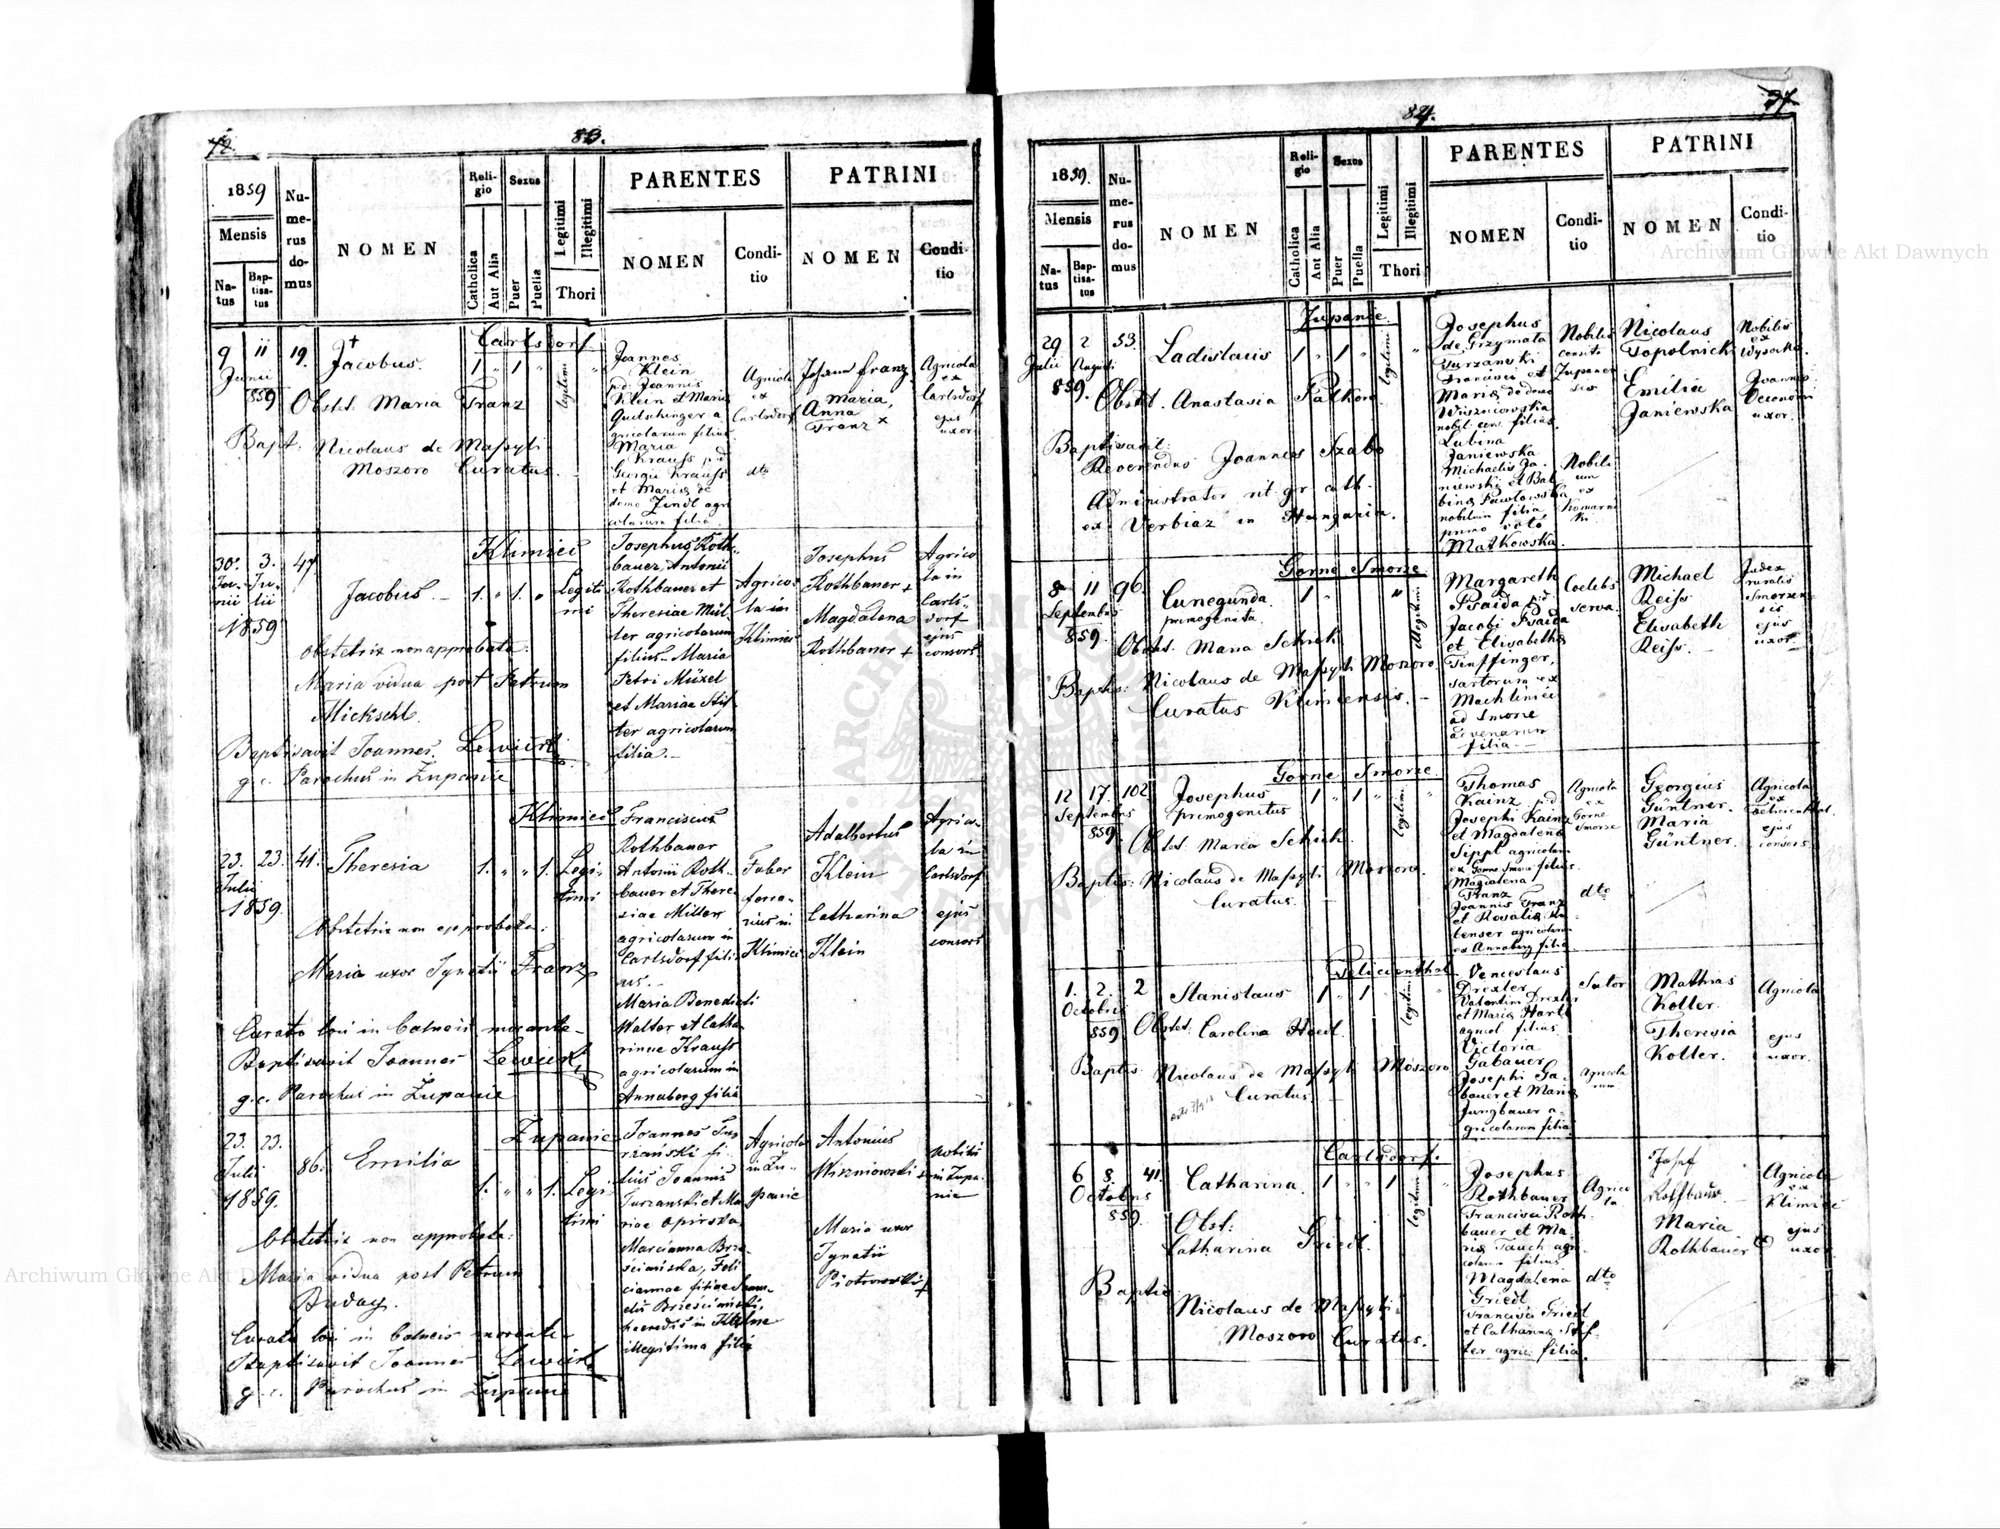 72.
83.
1859
Mensis
Natus
Baptisatus
Numerus domus
NOMEN
Religio
Catholica
Aut Alia
Sexus
Puer
Puella
Legitimi
Illegitimi
Thori
PARENTES
NOMEN
Conditio
PATRINI
NOMEN
Conditio
Carlsdorf
9 11 19. Jacobus. 1 " 1 "
Junii
859
legitimi
Obstet. Maria Franz
Bapt. Nicolaus de
Moszoro Curatus.
Joannes
Klein
p.d. Joannis
Klein et Maria
agricolarum filius
Maria
Krauss p.d.
Georgii Krauss
et Maria de
domo Zindl agri
colarum filia
Agricola
ex
Carlsdorf
dto
Johann Franz
Maria,
Anna
Franz x
Agricola
ex
Carlsdorf
ejus
uxor
Klimiec
30. 3. 47
Junii Julii
1859
Jacobus. 1. " 1. " Legiti
mi
obstetrix non approbata.
Maria vidua post Petrum
Mickschl.
Baptisavit Joannes Lewicki
g.c. Parochus in Zupanie
Josephus Roth-
bauer, Antonii
Rothbauer et
Theresiae Mül-
ler agricolarum
filius - Maria
Petri Müzel
et Mariae Stif-
ter agricolarum
filia. -
Agrico-
la in
Klimiec
Josephus
Rothbauer +
Magdalena
Rothbauer +
Agrico
la in
Carls-
dorf
ejus
consors
Klimiec
23. 23. 41. Theresia 1. " " 1. Legi-
timi
Julii
1859.
Obstetrix non approbata.
Maria uxor Ignatii Franz
Curato loci in balneis morante -
Baptisavit Joannes Lewicki
g.c. Parochus in Zupanie
Franciscus
Rothbauer
Antonii Roth-
bauer et There-
siae Miller
agricolarum in
Carlsdorf fili-
us. -
Maria Benedicti
Walter et Catha
rinae Krauss
agricolarum in
Annaberg filia
Faber
ferra-
rius in
Klimiec
Adalbertus
Klein
Catharina
Klein
Agrico-
la in
Carlsdorf
ejus
consors
Zupanie
23. 23. 86. Emilia 1. " " 1. Legi
timi
Julii
1859.
Obstetrix non approbata:
Maria vidua post Petrum
Curato loci in balneis morante -
Baptisavit Joannes Lewicki
g.c. Parochus in Zupanie
Joannes Tur
żański fi-
lius Joannis
Turzanski et Ma
riae
Marcianna
illegitima filia
Agricola
in Żu-
panie
Antonius
Wiszniowski +
Maria uxor
Ignatii
Piotrowski +
nobilis
in Zupa-
nie
84.
37.
1859.
Mensis
Natus
Baptisatus
Numerus domus
NOMEN
Religio
Catholica
Aut Alia
Sexus
Puer
Puella
Legitimi
Illegitimi
Thori
PARENTES
NOMEN
Conditio
PATRINI
NOMEN
Conditio
Zupanie
29 2 53 Ladislaus 1 " 1 "
Julii Augusti
859.
legitimi
Obstet. Anastasia
Baptisavit:
Reverendus Joannes Szabo
Administrator rit. gr. cath.
ex Verbiaz in Hungaria.
Josephus
de Grzymala
Turzanski
Francisci et
Maria de domo
Wiszniowska
filius.
Janiewska
Michaelis Ja-
niewski et Bal
bina Pawlowska
nobilium filia
primo voto
Matkowska.
Nobilis
Nobili
um
ex
Nicolaus
Topolnicki
Emilia
Janiewska
Nobilis
ex
Wysocko
Joannis
Oeconomi
uxor
Gorne Smorze
8 11 96 Cunegunda. 1 "
primogenita.
Septembris
859.
illegitimi
Obstet. Maria Schich
Baptis: Nicolaus de Moszoro
Curatus Klimiensis. -
Margareth
Psaida p.d.
Jacobi Psaida
et Elisabetha
sartorum ex
Machliniec
ad Smorze
advenarum
filia -
Coelebs
serva
Michael
Reiss
Elisabeth
Reiss. -
Judex
ruralis
Smorzen-
sis
ejus
uxor
Gorne Smorze.
12 17. 102 Josephus 1 " 1 "
primogenitus
Septembris
859.
legitimi
Obstet. Maria Schich
Baptis: Nicolaus de Moszoro.
Curatus.
Thomas
Kainz p.d.
Josephi Kainz
et Magdalena
Sippl agricolarum
ex Gorne Smorze filius.
Magdalena
Franz
Joannis Franz
et Rosalia
agricolarum
ex Annaberg filia
Agricola
ex
Gorne
Smorze
dto
Georgius
Güntner.
Maria
Güntner.
Agricola
ex
Felicienthal
ejus
consors
Felicienthal
1. 2. 2 Stanislaus 1 " 1 "
Octobris
859
legitimi
Obstet. Carolina Hoedl.
Baptis Nicolaus de Moszoro
Curatus
Venceslaus
Drexler
Valentini Drexler
et Maria Hartl
agricol filius
Victoria
Gabauer
Josephi Ga-
bauer et Maria
Jungbauer a-
gricolarum filia
Sutor
Agricola
rum
Mathias
Koller.
Theresia
Koller.
Agricola
ejus
uxor.
Carlsdorf.
6 8. 41. Catharina. 1 " " 1
Octobris
859.
legitimi
Obst:
Catharina Griedl.
Baptis
Nicolaus de
Moszoro Curatus.
Josephus
Rothbauer
Francisci Roth-
bauer et Ma-
ria Tauch agri-
colarum filius
Magdalena
Griedl
Francisci Griedl
et Catharina Stif-
ter agric. filia.
Agrico
la
dto
Josef
Rothbauer
Maria
Rothbauer
Agricola
ex
Klimiec
ejus
uxor
Archiwum Główne Akt Dawnych
Archiwum Główne Akt Dawnych